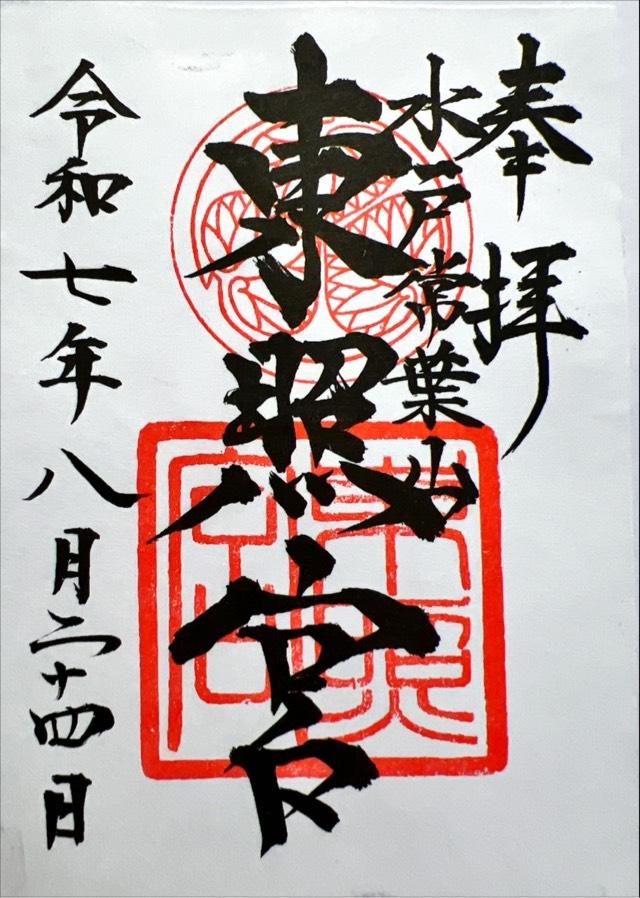 奉拝
水戸常葉山
東照宮
令和七年八月二十四日